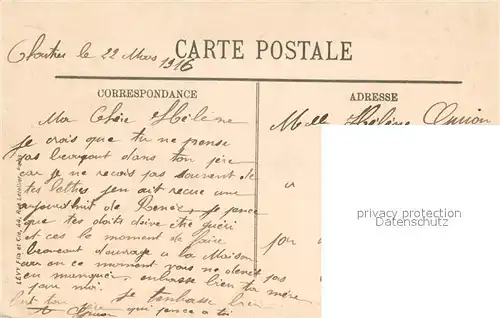 Chartres le 22 Mars 1916
CARTE POSTALE
CORRESPONDANCE
ADRESSE
Ma Chère Hélène
je crois que tu ne pense
pas beaucout dans ton père
car je ne recois pas souvent de
tes lettres jen ait recue une
aujourdhuit de Renée, je pense
que tes doits doive etre guéri
et ces le moment de faire
beaucout douvrage a la Maison
car en ce moment vous ne devez pas
en manquer, enbasse bien ta mère
pour moi. je tenbasse bien
ton père qui pence a toi
Melle Hélène
LEVY Fils et Cie, 44, Rue Letellier
privacy protection
Datenschutz